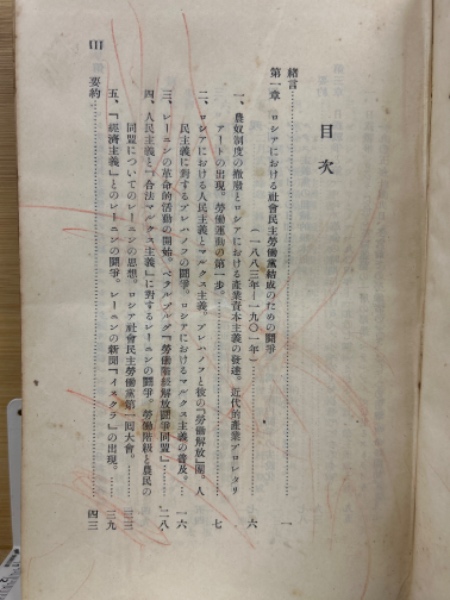 目次
緒言……一
第一章 ロシアにおける社會民主勞働黨結成のための鬪爭
（一八八三年―一九〇一年）……六
一、農奴制度の撤廢とロシアにおける產業資本主義の發達。近代的產業プロレタリ
アートの出現。勞働運動の第一步。……七
二、ロシアにおける人民主義とマルクス主義。プレハノフと彼の『勞働解放』團。人
民主義に對するプレハノフの鬪爭。ロシアにおけるマルクス主義の普及。……一六
三、レーニンの革命的活動の開始。ペテルブルグ『勞働階級解放鬪爭同盟』……二八
四、人民主義と『合法マルクス主義』に對するレーニンの鬪爭。勞働階級と農民の
同盟についてのレーニンの思想。ロシア社會民主勞働黨第一回大會。……三三
五、『經濟主義』とのレーニンの鬪爭。レーニンの新聞『イスクラ』の出現。……三九
要約……四三